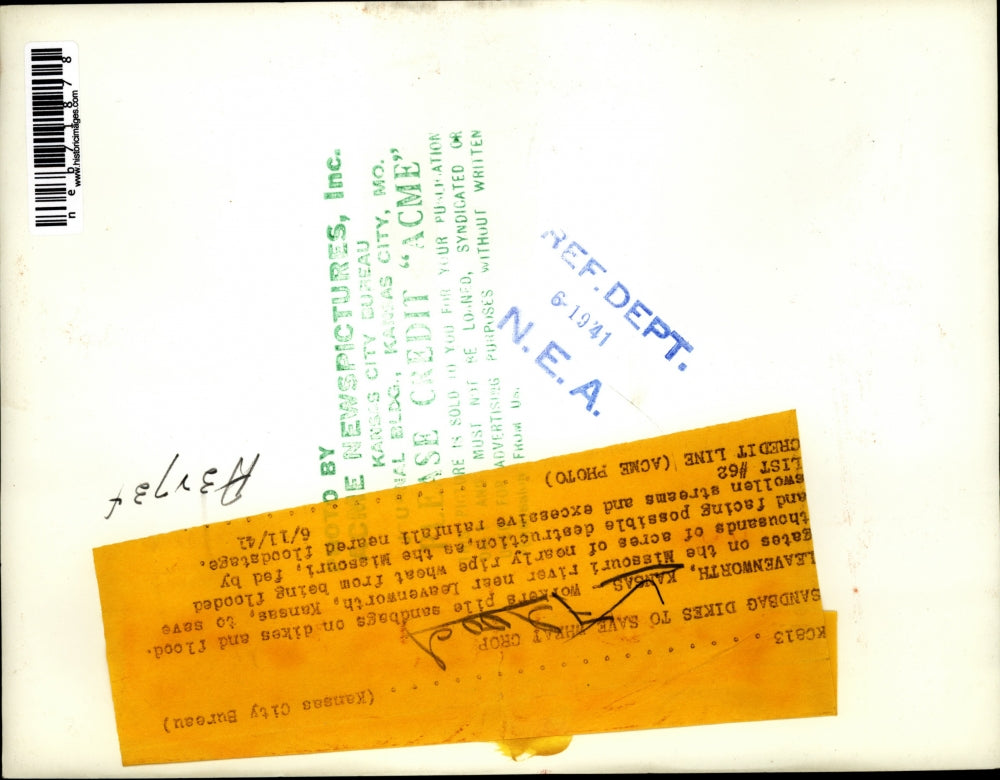 neb71878
www.historicimages.com
BY
ACME NEWSPICTURES, Inc.
KANSAS CITY BUREAU
BLDG., KANSAS CITY, MO.
PLEASE CREDIT "ACME"
PICTURE IS SOLD TO YOU FOR YOUR PUBLICATION
AND MUST NOT BE LOANED, SYNDICATED OR
FOR ADVERTISING PURPOSES WITHOUT WRITTEN
FROM US.
REF. DEPT.
6-19'41
N.E.A.
KC813 (Kansas City Bureau)
SANDBAG DIKES TO SAVE WHEAT CROP
LEAVENWORTH, KANSAS -- Workers pile sandbags on dikes and flood.
gates on the Missouri river near Leavenworth, Kansas, to save
thousands of acres of nearly ripe wheat from being flooded
and facing possible destruction, as the Missouri, fed by
swollen streams and excessive rainfall neared floodstage.
LIST #62 6/11/41
CREDIT LINE (ACME PHOTO)